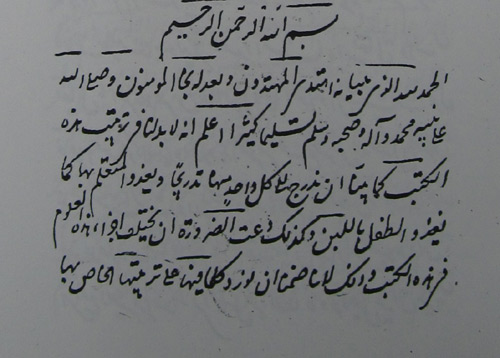 بسم الله الرحمن الرحيم
الحمد لله الذي ببيانه اهتدى المهتدون وبعدله نجا المومنون وصلى الله
على نبيه محمد وآله وصحبه وسلم تسليما كثيرا اعلم انه لا بد لنا في ترتيب هذه
الكتب كما بينا ان ندرج للاكل واحد منها تدريجا ويغذو المتعلم بها كما
يغذو الطفل باللبن وكذلك دعت الضرورة ان يختلف اجزاء هذه العلوم
في هذه الكتب وذلك لانا ضمنا ان نورد كلما فيها على ترتيبها الخاص بها